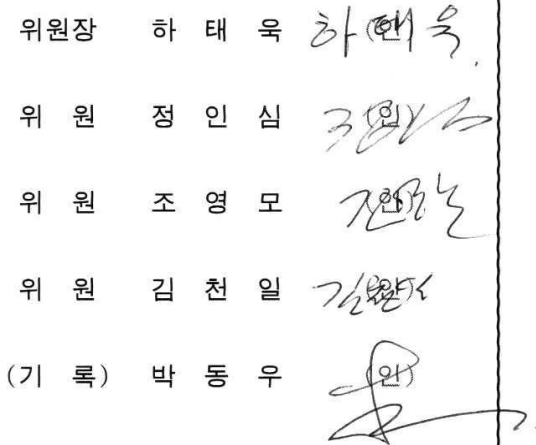 위원장 하 태 욱 하태욱 (인)
위 원 정 인 심 (인)
위 원 조 영 모 (인)
위 원 김 천 일 (인)
(기 록) 박 동 우 (인)